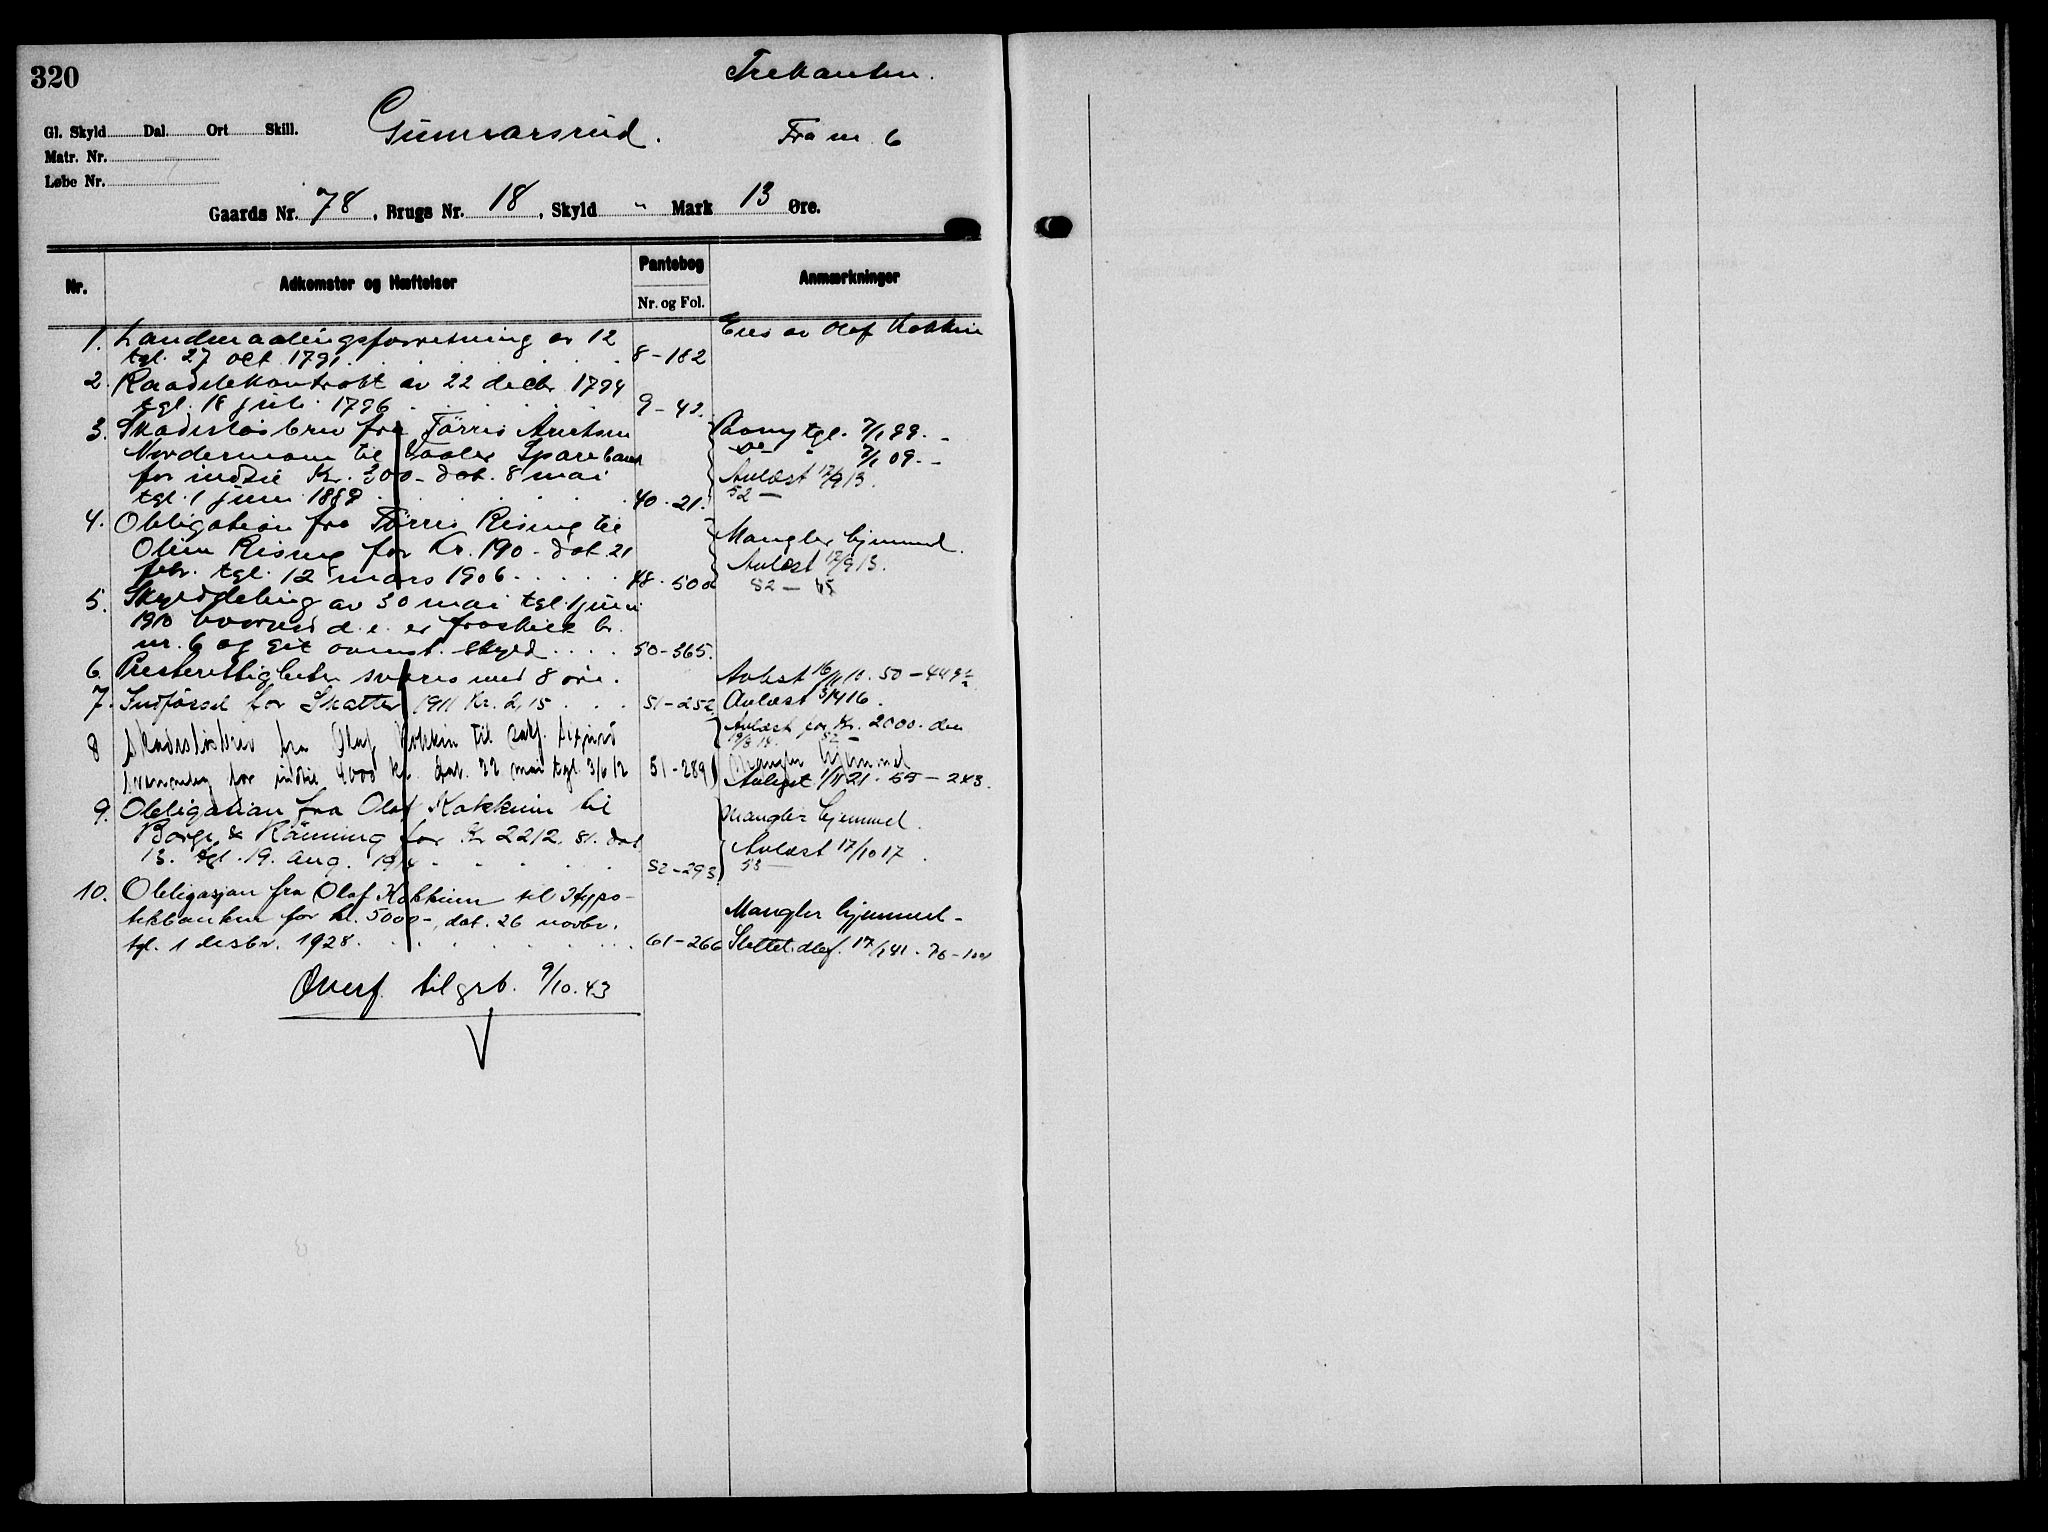 320
Trekanten.
Gl. Skyld Dal. Ort Skill.
Gunnarsrud.
Fra nr. 6
Matr. Nr.
Løbe Nr.
Gaards Nr. 78, Brugs Nr. 18, Skyld " Mark 13 Øre.
Nr. Adkomster og Hæftelser Pantebog Anmærkninger
Nr. og Fol.
1. Landmaalingsforretning av 12 Eies av Olaf Kokkin
tgl. 27 oct 1791. 8-182
2. Kontrakt av 22 decbr. 1794
tgl. 18 juli 1796 9-42.
3. Skadesløsbrev fra Tørris Paany tgl. 7/1 99. -
Nordermoen til Vaaler Sparebank do 7/1 09. -
for indtil Kr. 300- dat. 8 mai Avlæst 17/9 13.
tgl. 1 juni 1889 40-21. 52 -
4. Obligation fra Tørris Rising til Mangler hjemmel.
Oline Rising for Kr. 190- dat. 21 Avlæst 17/9 13.
febr. tgl. 12 mars 1906. 48-500 52 -
5. Skylddeling av 30 mai tgl. 1 juni
1910 hvorved d. e. er fraskilt br.
nr. 6 og git ovenst. skyld 50-365.
6. Presterettigheten svares med 8 øre. Avløst 16/11 10. 50-449
7. Indførsel for Skatter 1911 Kr. 2,15 51-252 Avlæst 3/4 16.
Avlæst for Kr. 2000. den
8 Skadesløsbrev fra Olaf Kokkin til Sigurd
Svenneby for indtil 4000 Kr. dat. 22 mai tgl 3/6 12 51-289 Mangler hjemmel
Avlyst 1/11 21. 55-243.
9. Obligation fra Olaf Kokkin til Mangler hjemmel.
Borge & Rønning for Kr 2212,81. dat
13. tgl. 19. aug. 1914 52-293 Avlæst 17/10 17.
53-
10. Obligasjon fra Olaf Kokkin til Hypo-
tekbanken for kr. 5000-, dat. 26 novbr. Mangler hjemmel-
tgl. 1 desbr. 1928. 61-266 Slettet 17/1 41. 76-
Overf. til grb. 9/10.43